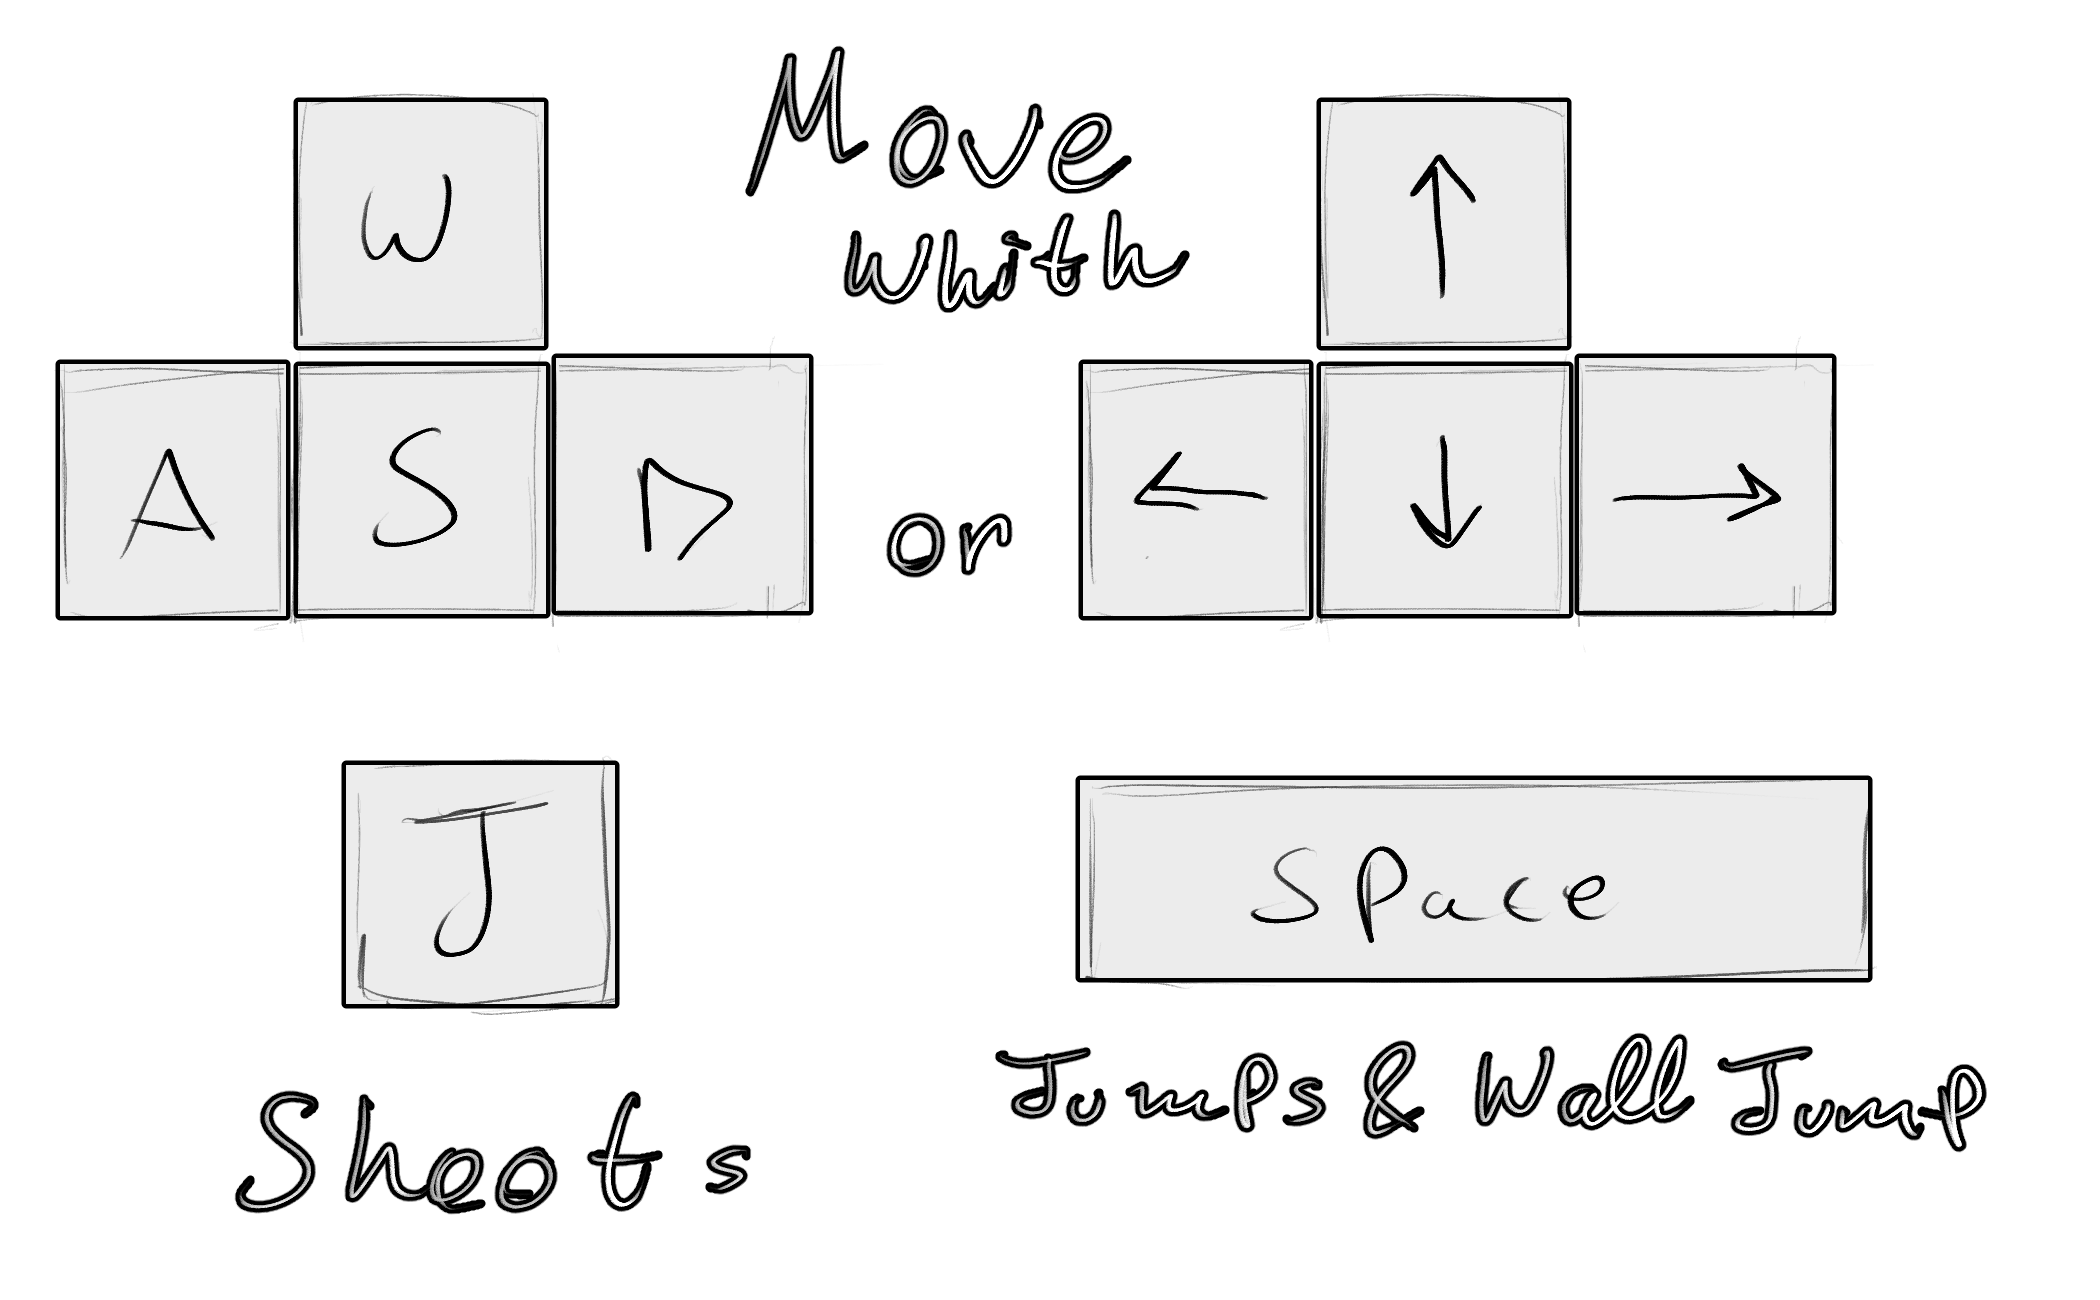 Move
Whith
W
A S D
or
↑
← ↓ →
J
Shoots
Space
Jumps & Wall Jump